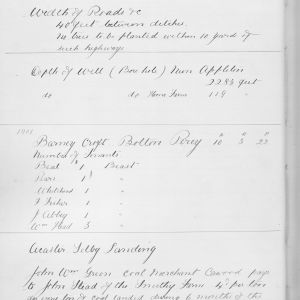 Width of Roads &c
40 feet between ditches.
No trees to be planted within 10 yards of
such highways.
Depth of Well (Bore hole) Nun Appleton
228½ feet
do do Home Farm 119 "
1911
Barney Croft Bolton Percy 10 " 3 " 22 "
Number of Tenants
Beal 1 Beast
Parr 1 "
Whitehead 1 "
F Fisher 1 "
J Abbey 1 "
Wm Head 3 "
Acaster Selby Landing
John Wm Green coal Merchant Cawood pays
to John Head of the Smithy Farm 4d per ton
for every ton of coal landed during 6 months of the